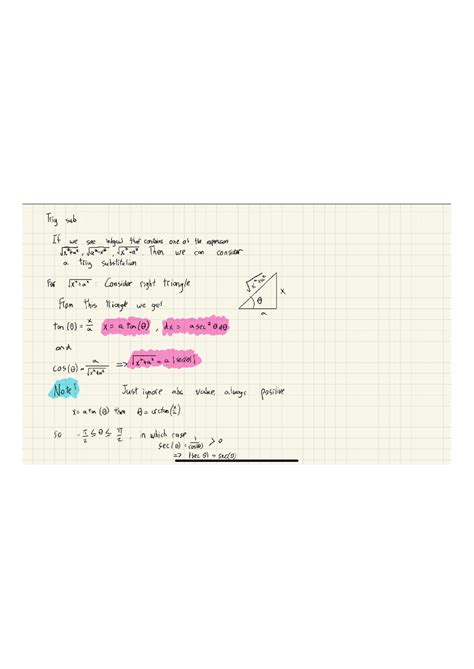 Trig sub
If we see integral that contains one of the expression
√x²+a² , √a²-x² , √x²-a² . Then we can consider
a trig substitution
For √x²+a² : Consider right triangle
From this triangle we get
√x²+a²
x
θ
a
tan(θ) = x/a x = a tan(θ) , dx = a sec²θ dθ
and
cos(θ) = a/√x²+a² => √x²+a² = a |sec(θ)|
Note! Just ignore abs value, always positive
x = a tan(θ) then θ = arctan(x/a)
so -π/2 ≤ θ ≤ π/2 , in which case
sec(θ) = 1/cos(θ) > 0
=> |sec θ| = sec(θ)